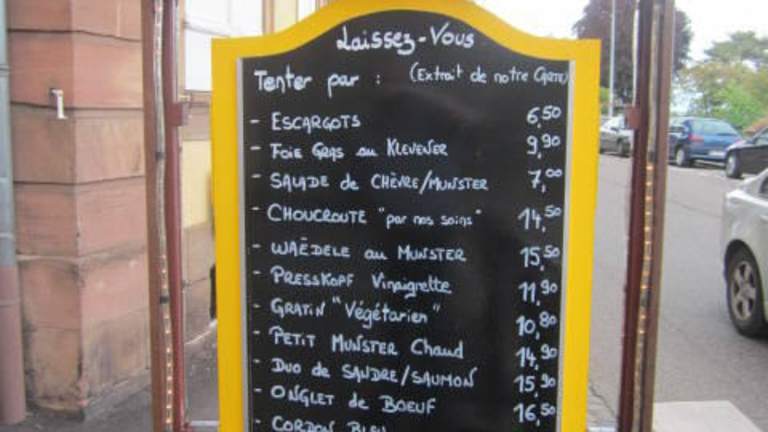 Laissez-Vous
Tenter par : (Extrait de notre CARTE)
- ESCARGOTS 6,50
- FOIE GRAS au KLEVENER 9,90
- SALADE de CHÈVRE/MUNSTER 7,00
- CHOUCROUTE "par nos soins" 14,50
- WAËDELE au MUNSTER 15,50
- PRESSKOPF Vinaigrette 11,90
- GRATIN "Végétarien" 10,80
- PETIT MUNSTER Chaud 14,90
- DUO de SANDRE/SAUMON 15,90
- ONGLET de BOEUF 16,50
- CORDON BLEU